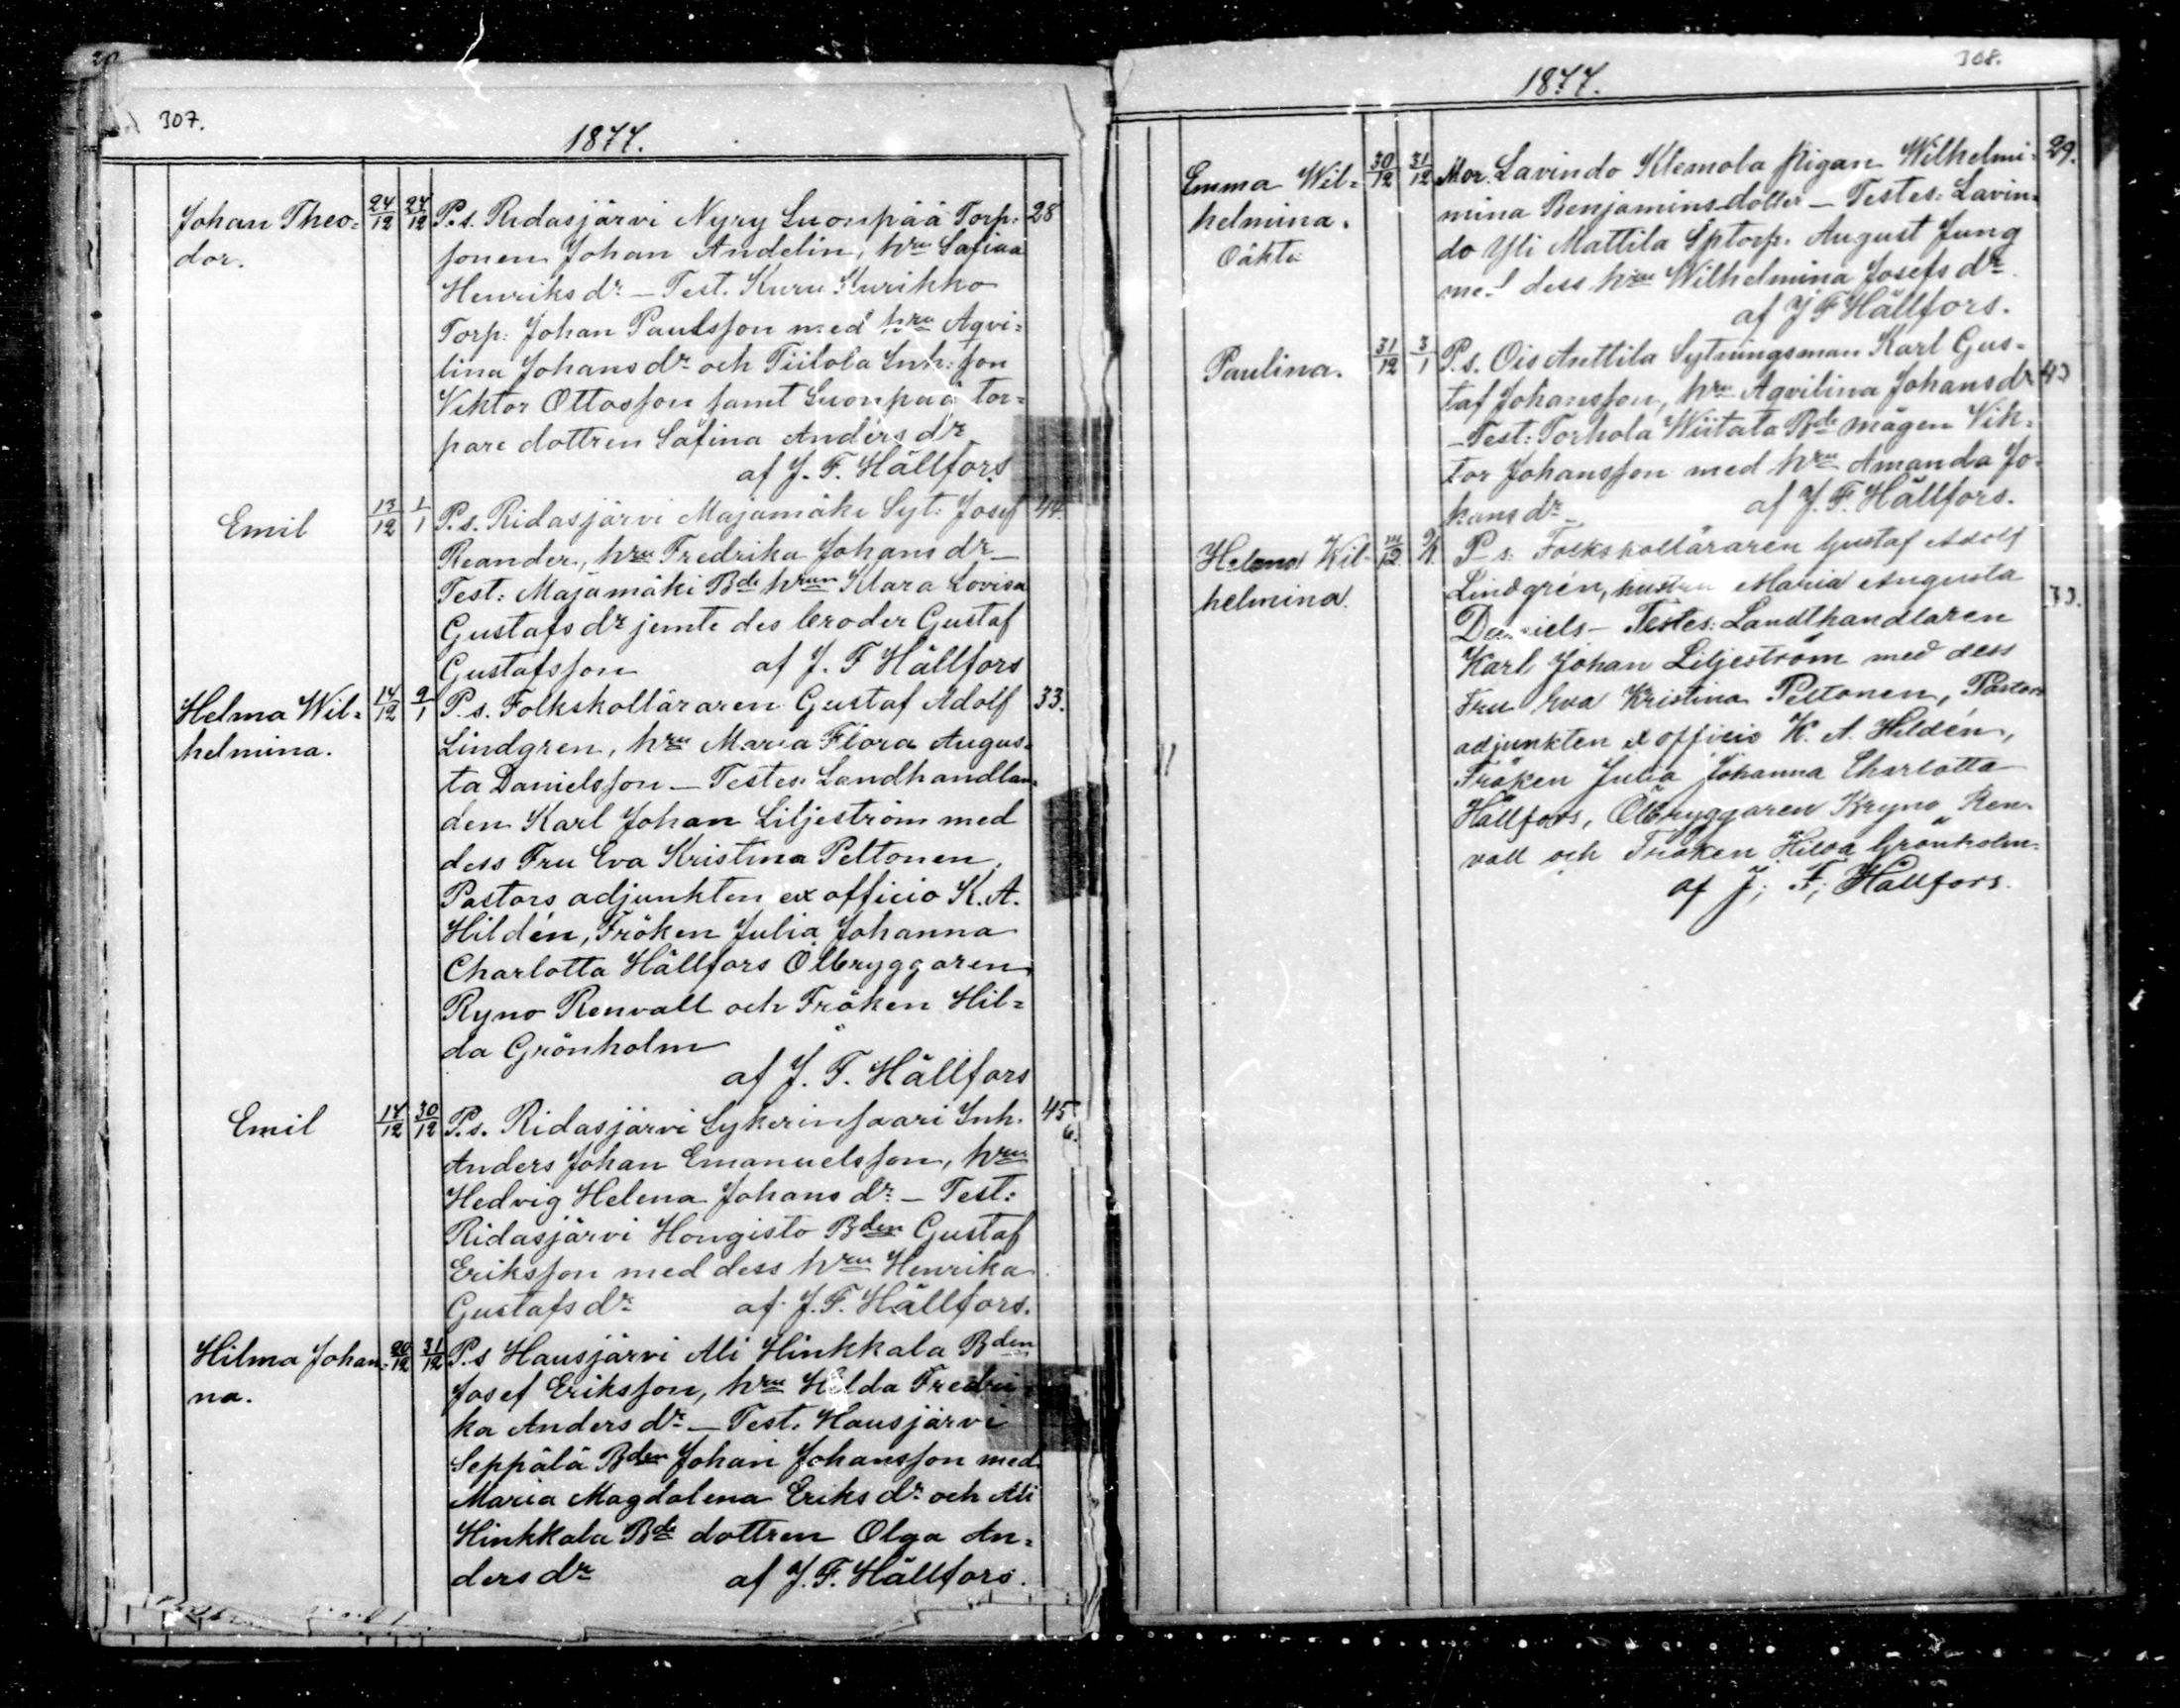 307.
1877.
Johan Theo= 24/12 27/12 P.s. Ridasjärvi Nyry Luonpää Torp: 28
dor. sonen Johan Andelin, hru Safina
Henriks dr – Test. Kuru Kurikko
Torp: Johan Paulsson med hru Aqvi=
lina Johans dr och Tiilola Inh: son
Viktor Ottosson samt Luonpää tor=
pare dottren Safina Anders dr
af J. F. Hällfors
Emil 13/12 1/1 P.s. Ridasjärvi Majamäki Syt: Josef 44.
Reander, hru Fredrika Johans dr –
Test: Majamäki Bde hrun Klara Lovisa
Gustafs dr jemte des broder Gustaf
Gustafsson af J. F Hällfors
Helma Wil= 14/12 9/1 P.s. Folkskolläraren Gustaf Adolf 33.
helmina. Lindgren, hru Maria Flora Augus=
ta Danielsson – Testes: Landhandlan=
den Karl Johan Liljeström med
dess Fru Eva Kristina Peltonen,
Pastors adjunkten ex officio K. A.
Hildén, Fröken Julia Johanna
Charlotta Hällfors Ölbryggaren
Ryno Renvall och Fröken Hil=
da Grönholm
af J. F. Hällfors
Emil 14/12 30/12 P.s. Ridasjärvi Sykerinsaari Inh. 45
6.
Anders Johan Emanuelsson, hru
Hedvig Helena Johans dr – Test:
Ridasjärvi Hongisto Bden Gustaf
Eriksson med dess hru Henrika
Gustafs dr af J. F. Hällfors.
Hilma Johan= 20/12 31/12 P.s Hausjärvi Ali Hinkkala Bden
na. Josef Eriksson, hru Hilda Fredri=
ka Anders dr – Test. Hausjärvi
Seppälä Bden Johan Johansson med
Maria Magdalena Eriks dr och Ali
Hinkkala Bde dottren Olga An=
ders dr af J. F. Hällfors.
308.
1877.
Emma Wil= 30/12 31/12 Mor. Lavindo Klemola pigan Wilhelmi= 29.
helmina. mina Benjamins dotter – Testes: Lavin=
Oäkta do Yli Mattila Sptorp. August Jung
med dess hru Wilhelmina Josefs dr
af J F Hällfors.
Paulina. 31/12 3/1 P.s. Ois Anttila Sytningsman Karl Gus=
taf Johansson, hru Aqvilina Johans dr 43
– Test: Torhola Wiitala Bde mågen Vik=
tor Johansson med hru Amanda Jo=
hans dr – af J. F. Hällfors.
Helma Wil- 14/12 9/1 P. s. Folkskolläraren Gustaf Adolf
helmina. Lindgrén, hustru Maria Augusta
Daniels – Testes: Landthandlaren 33.
Karl Johan Liljeström med dess
Fru Eva Kristina Peltonen, Pastors
adjunkten ex officio K. A. Hildén,
Fröken Julia Johanna Charlotta
Hällfors, Ölbryggaren Kryno Ren-
vall och Fröken Hilda Grönholm.
af J. F. Hällfors.